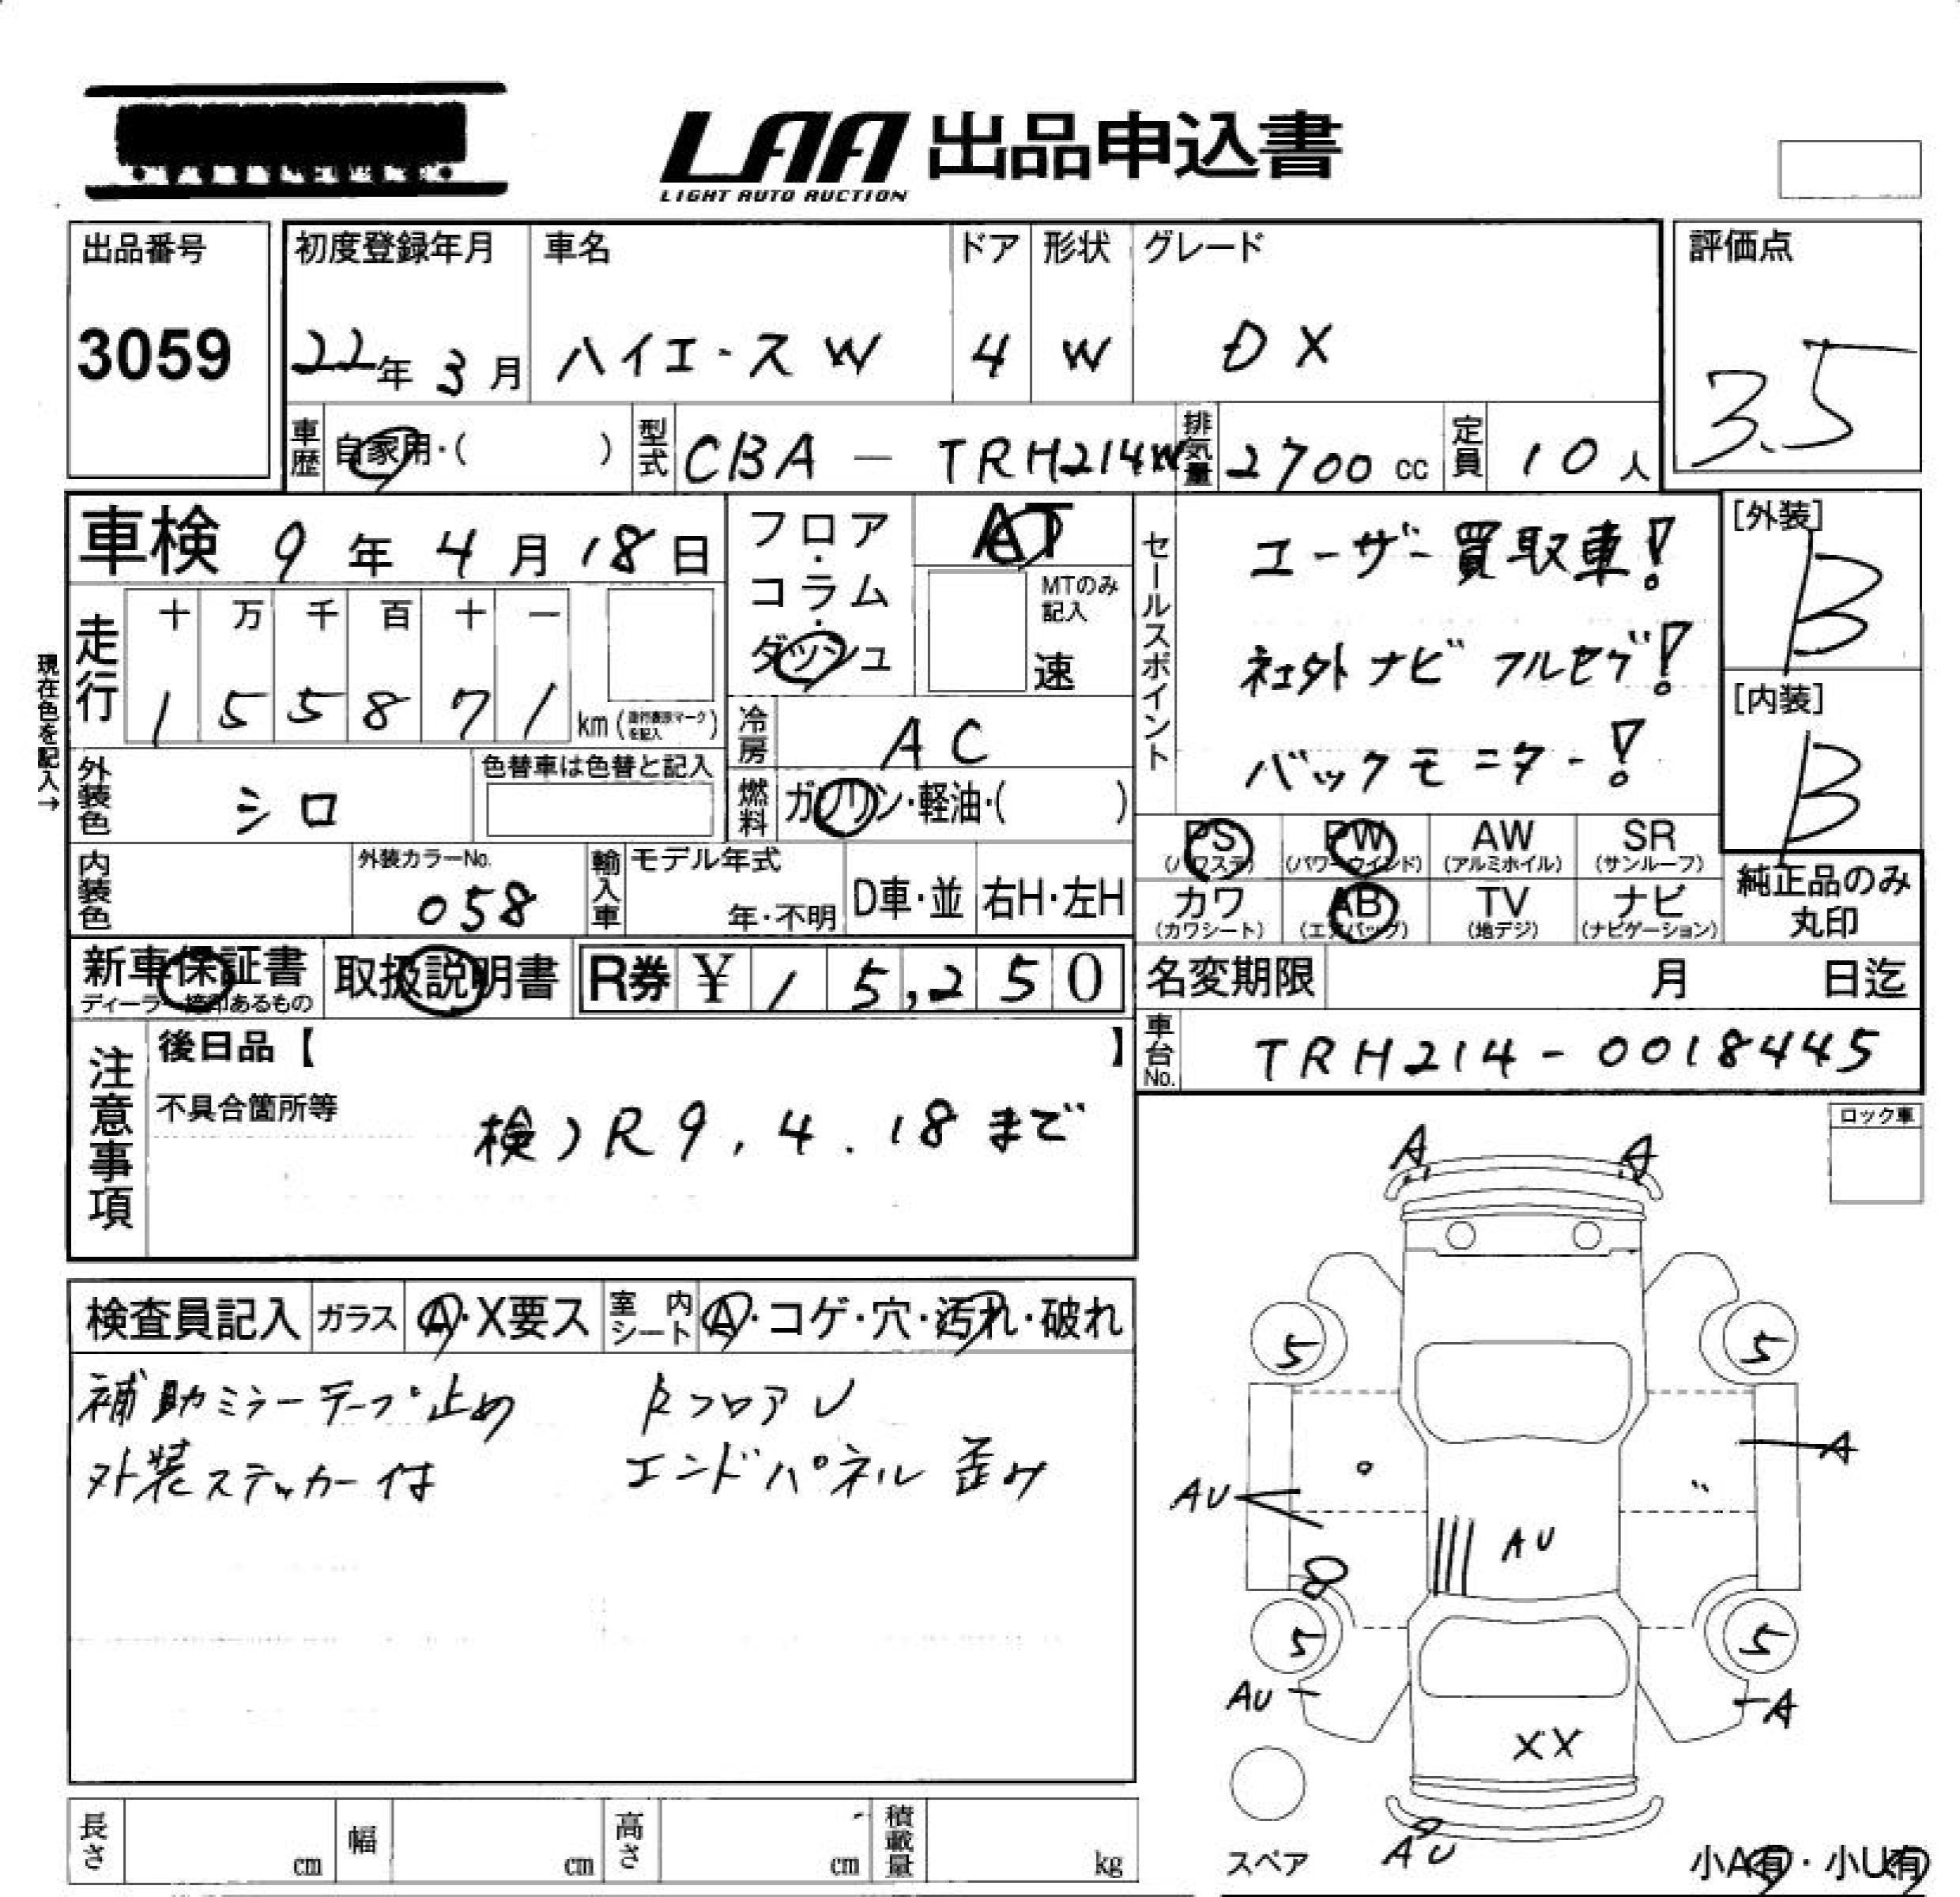 LAA 出品申込書
LIGHT AUTO AUCTION
出品番号
3059
初度登録年月
22年 3月
車名
ハイエースW
ドア
4
形状
W
グレード
DX
評価点
3.5
車歴
自家用・( )
型式
CBA - TRH214W
排気量
2700 cc
定員
10 人
車検 9年 4月 18日
フロア・コラム・ダッシュ
AT
MTのみ記入
速
セールスポイント
ユーザー買取車!
社外ナビ フルセグ!
バックモニター!
[外装]
B
[内装]
B
現在色を記入→
走行
十 万 千 百 十 一
1 5 5 8 7 1 km
冷房
AC
燃料
ガソリン・軽油・( )
外装色
シロ
色替車は色替と記入
内装色
外装カラーNo.
058
輸入車
モデル年式
年・不明
D車・並
右H・左H
PS (パワステ)
PW (パワーウインド)
AW (アルミホイル)
SR (サンルーフ)
カワ (カワシート)
AB (エアバッグ)
TV (地デジ)
ナビ (ナビゲーション)
純正品のみ
丸印
新車保証書
取扱説明書
R券 ¥ 15,250
名変期限 月 日迄
車台No.
TRH214-0018445
注意事項
後日品【 】
不具合箇所等
検)R9.4.18まで
ロック車
検査員記入
ガラス
A・X要ス
室内シート
A・コゲ・穴・汚れ・破れ
補助ミラーテープ止め
外装ステッカー付
RフロアU
エンドパネル歪み
A A
5 5
A
AU
AU
8
5 5
AU A
XX
AU
スペア
小A有・小U有
長さ cm
幅 cm
高さ cm
積載量 kg